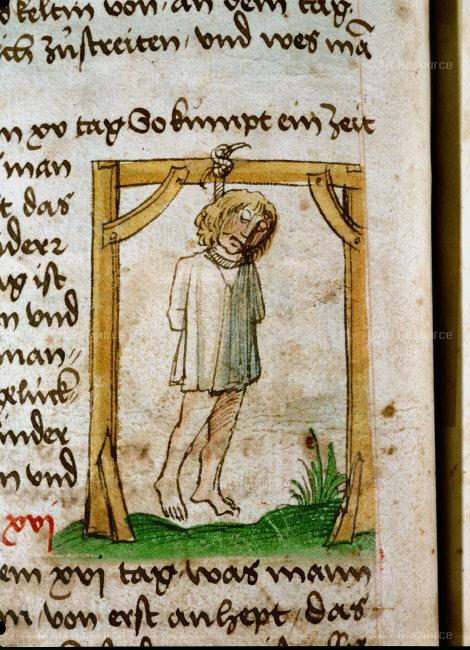 keltin von / an dem tag
ich zůstreiten / vnd wes mā
n xv tag So kumpt ein zeit
man
t das
nderr
ag ist
n vnd
man=
gelück=
inder
n vnd
xvi
em xvi tag was mann
n / von erst anhept / das